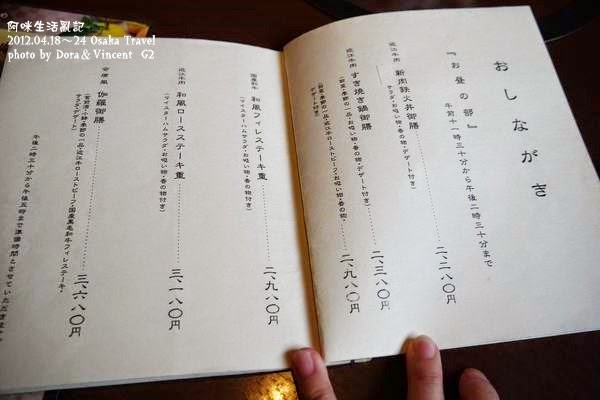 阿咪生活亂記
2012.04.18～24 Osaka Travel
photo by Dora & Vincent G2
おしながき
『お昼の部』
午前十一時三十分から午後二時三十分まで
近江牛肉 新肉鉄火丼御膳 二、二八〇円
サラダ・お吸い物・香の物・デザート付き)
近江牛肉 すき焼き鍋御膳 二、九八〇円
デザート付き)
国産和牛 和風フィレステーキ重 二、九八〇円
サラダ・お吸い物・香の物付き)
近江牛肉 和風ロースステーキ重 三、一八〇円
サラダ・お吸い物・香の物付き)
伽羅御膳 三、六八〇円
季節の一品・近江牛ローストビーフ・国産黒毛和牛フィレステーキ・
サラダ・デザート)
午後二時三十分から午後五時まで準備時間とさせていただきます